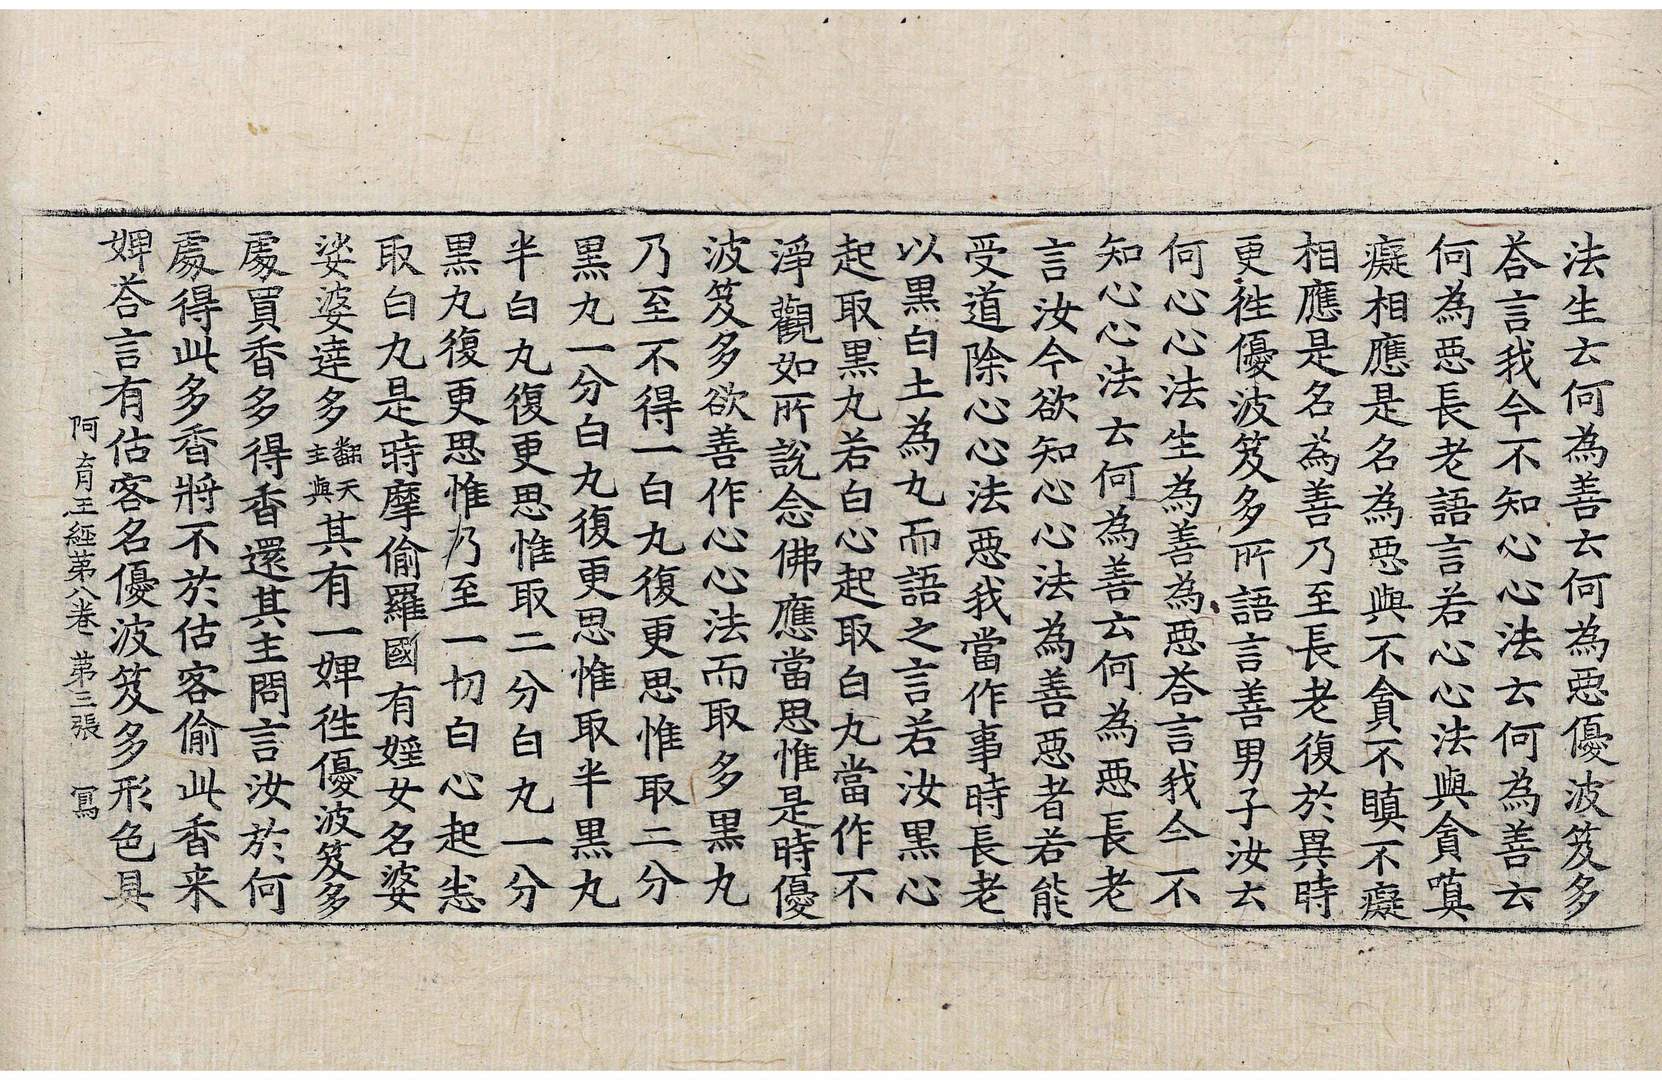 法生云何為善云何為惡優波笈多
荅言我今不知心心法云何為善云
何為惡長老語言若心心法與貪嗔
癡相應是名為惡與不貪不瞋不癡
相應是名為善乃至長老復於異時
更徃優波笈多所語言善男子汝云
何心心法生為善為惡荅言我今不
知心心法云何為善云何為惡長老
言汝今欲知心心法為善惡者若能
受道除心心法惡我當作事時長老
以黒白土為丸而語之言若汝黒心
起取黒丸若白心起取白丸當作不
淨觀如所說念佛應當思惟是時優
波笈多欲善作心心法而取多黒丸
乃至不得一白丸復更思惟取二分
黒丸一分白丸復更思惟取半黒丸
半白丸復更思惟取二分白丸一分
黒丸復更思惟乃至一切白心起悉
取白丸是時摩偷羅國有婬女名婆
娑婆達多翻天主與其有一婢徃優波笈多
處買香多得香還其主問言汝於何
處得此多香將不於估客偷此香来
婢荅言有估客名優波笈多形色具
阿育王經第八卷 第三張 寫